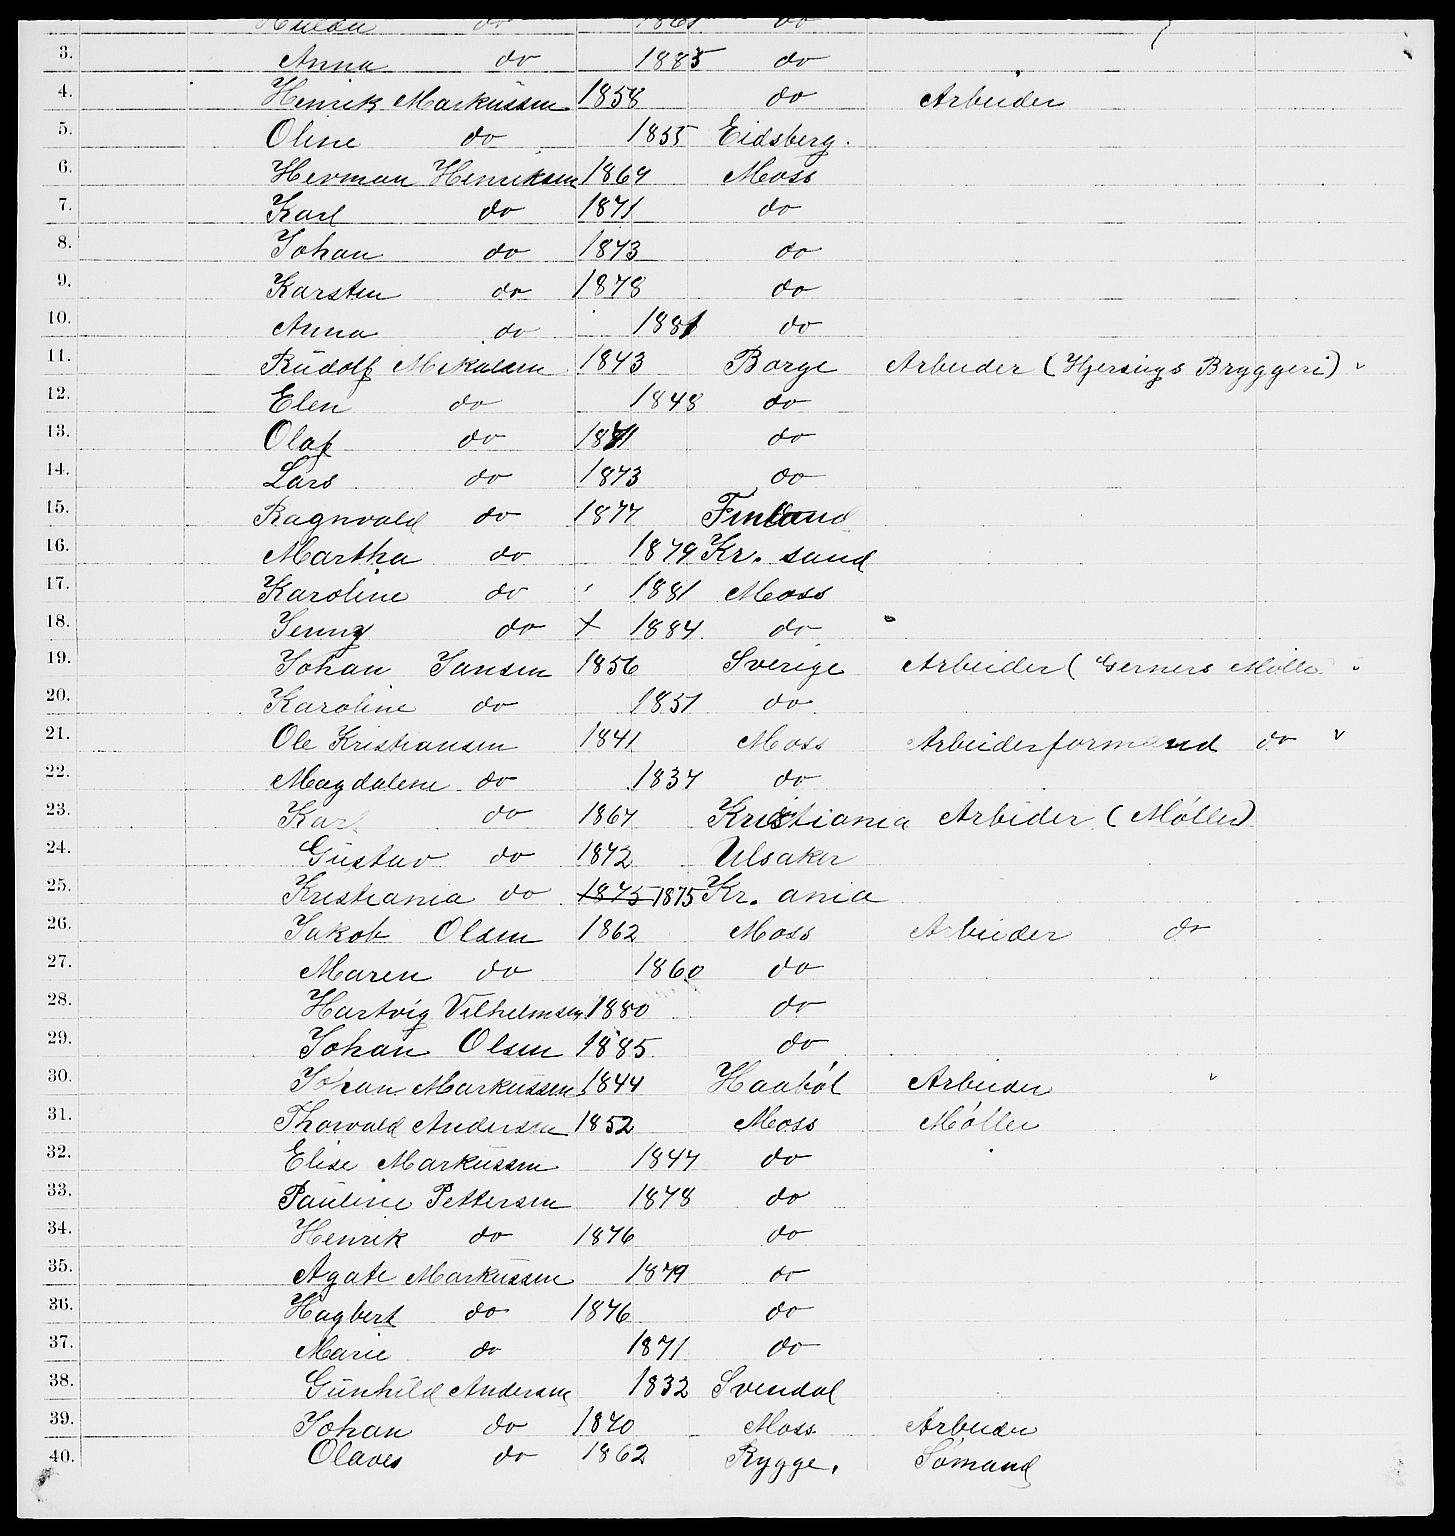 Hulda do 1861 do
3. Anna do 1885 do
4. Henrik Markussen 1858 do Arbeider
5. Oline do 1855 Eidsberg.
6. Herman Henriksen 1869 Moss
7. Karl do 1871 do
8. Johan do 1873 do
9. Karsten do 1878 do
10. Anna do 1881 do
11. Rudolf Mikalsen 1843 Borge Arbeider (Gjersings Bryggeri)
12. Elen do 1848 do
13. Olaf do 1871 do
14. Lars do 1873 do
15. Ragnvald do 1877 Finland
16. Martha do 1879 Kr. sand
17. Karoline do 1881 Moss
18. Jenny do + 1884. do
19. Johan Jansen 1856 Sverige Arbeider (Gerners Mølle
20. Karoline do 1851 do
21. Ole Kristiansen 1841 Moss Arbeiderformand do
22. Magdalene do 1837 do
23. Karl do 1867 Kristiania Arbeider (Møller)
24. Gustav do 1872 Ulsaker
25. Kristiania do 1875 1875 Kr. ania
26. Jakob Olsen 1862 Moss Arbeider do
27. Maren do 1860 do
28. Hartvig Vilhelmsen 1880 do
29. Johan Olsen 1885. do
30. Johan Markussen 1844 Haabøl Arbeider
31. Thorvald Andersen 1852 Moss Møller
32. Elise Markussen 1847 do
33. Pauline Pettersen 1878 do
34. Henrik do 1876 do
35. Agate Markussen 1879 do
36. Hagbert do 1876 do
37. Marie do 1871 do
38. Gunhild Andersen 1832 Svendal
39. Johan do 1870 Moss Arbeider
40. Olaves do 1862 Rygge. Sømand